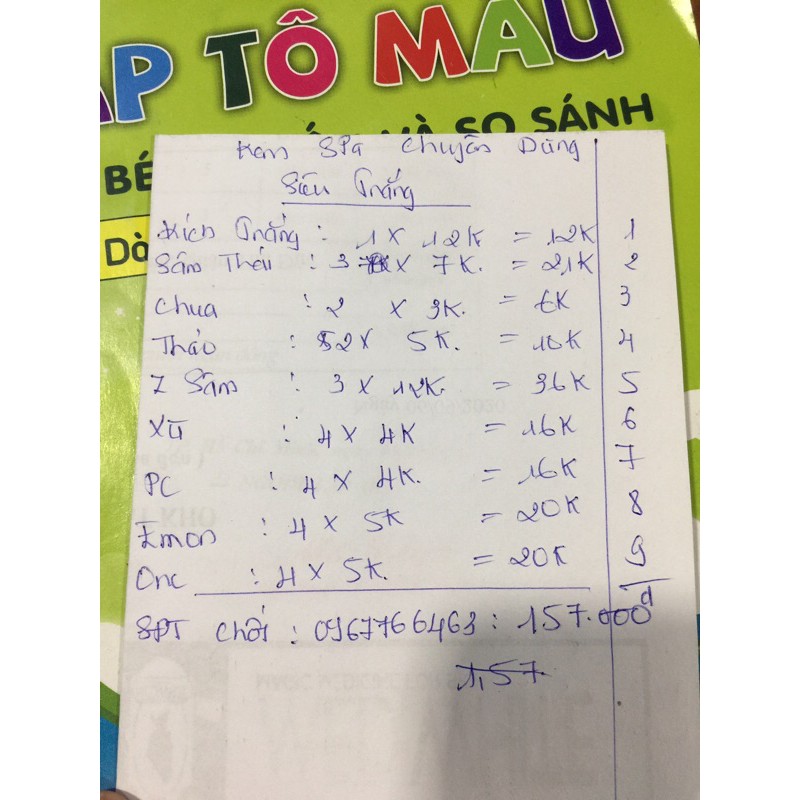 ẬP TÔ MÀU
BÉ VÀ SO SÁNH
Dò
Kem SPa Chuyên Dùng
Siêu Trắng
Kích Trắng : 1 x 12K = 12K 1
Sâm Thái : 3 x 7K. = 21K 2
Chua : 2 x 3K. = 6K 3
Tháo : 2 x 5K. = 10K 4
7 Sâm : 3 x 12K. = 36K 5
Xủ : 4 x 4K = 16K 6
PC : 4 x 4K. = 16K 7
Emon : 4 x 5K = 20K 8
Onc : 4 x 5K. = 20K 9
SĐT Chới : 0967766463 : 157.000đ
1,57